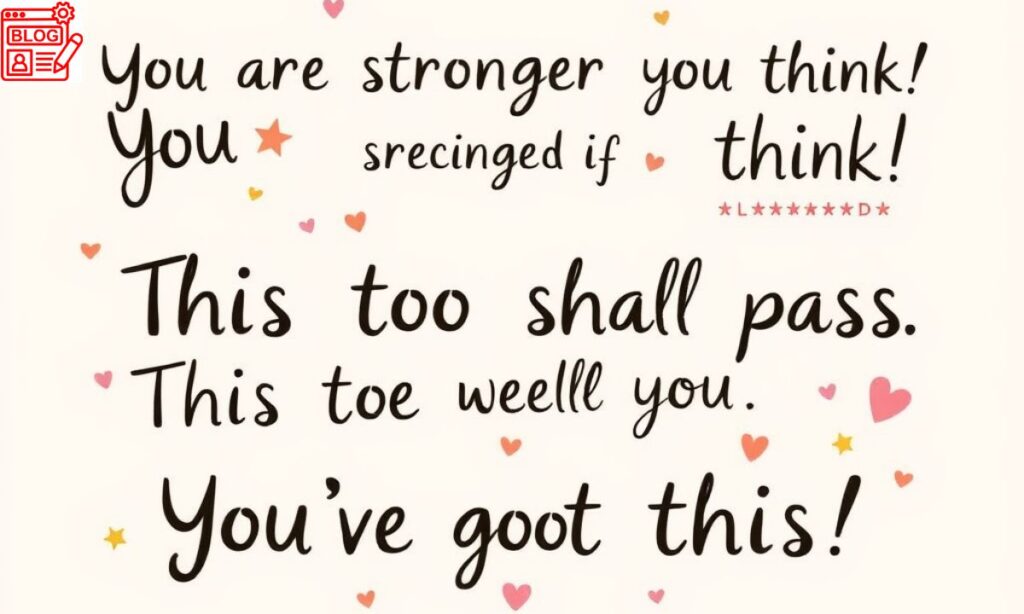 BLOG
You are stronger you think!
You srecinged if think!
*L******D*
This too shall pass.
This toe weelll you.
You've goot this!